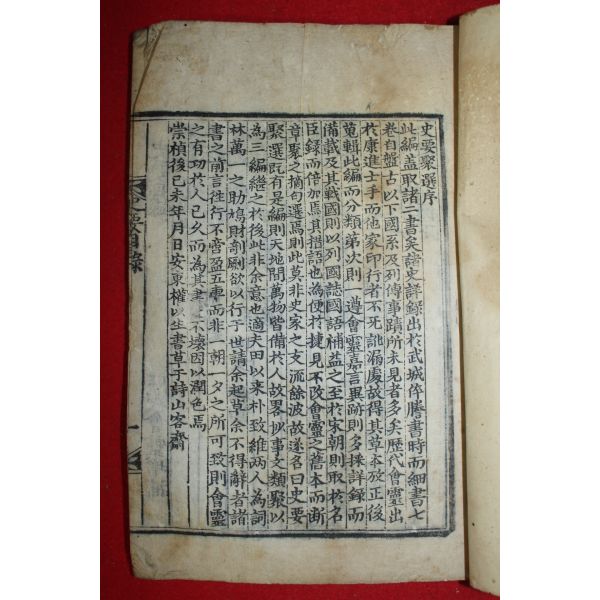 史要聚選序
此編盖取諸二書矣諸史詳錄出於武城倅謄書時而細書七
卷自盤古以下國系及列傳事蹟所未見者多矣歷代會靈出
於康進士手而他家印行者不死訛漏處故得其草本放正後
蒐輯此編而分類第次則一遵會靈嘉言異跡則多採詳錄而
備載及其戰國則以列國誌國語補益之至於宋朝則取於名
臣錄而倍加焉其措語也為便於捷見不改會靈之舊本而斷
章聚之摘句選焉則此莫非史家之支流餘波故遂名曰史要
聚選旣有是編則天地間萬物皆備於人故畧拟事文類聚以
為三編繼之於後此非余意也適夫田以来朴致維兩人為詞
林萬一之助鳩財剞劂欲以行于世請余起草余不得辭者諸
書之前言徃行不啻盈五車而非一朝一夕之所可致則會靈
之有功於人已久而為其書不壞因以潤色焉
崇禎後己未年月日安東權以生書草于詩山客齋
史要目錄
一